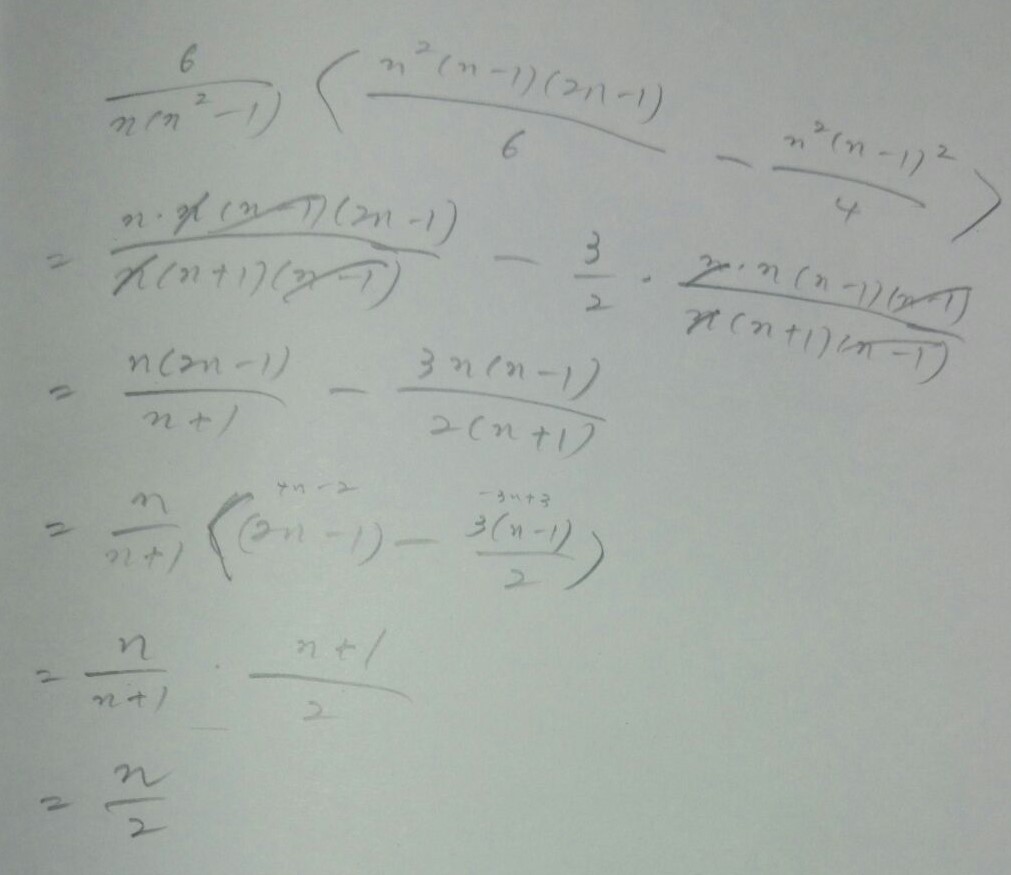 6/(n(n²-1)) ( n²(n-1)(2n-1)/6 - n²(n-1)²/4 )
= n·n(n-1)(2n-1)/(n(n+1)(n-1)) - 3/2 · n·n(n-1)(n-1)/(n(n+1)(n-1))
= n(2n-1)/(n+1) - 3n(n-1)/(2(n+1))
4n-2 -3n+3
= n/(n+1) ( (2n-1) - 3(n-1)/2 )
= n/(n+1) · (n+1)/2
= n/2